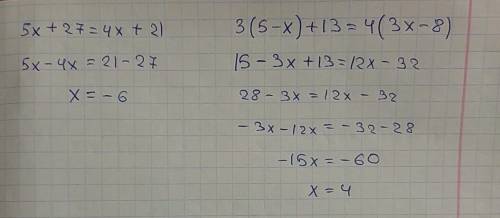 5x + 27 = 4x + 21
5x - 4x = 21 - 27
x = - 6
3(5 - x) + 13 = 4(3x - 8)
15 - 3x + 13 = 12x - 32
28 - 3x = 12x - 32
- 3x - 12x = - 32 - 28
- 15x = - 60
x = 4